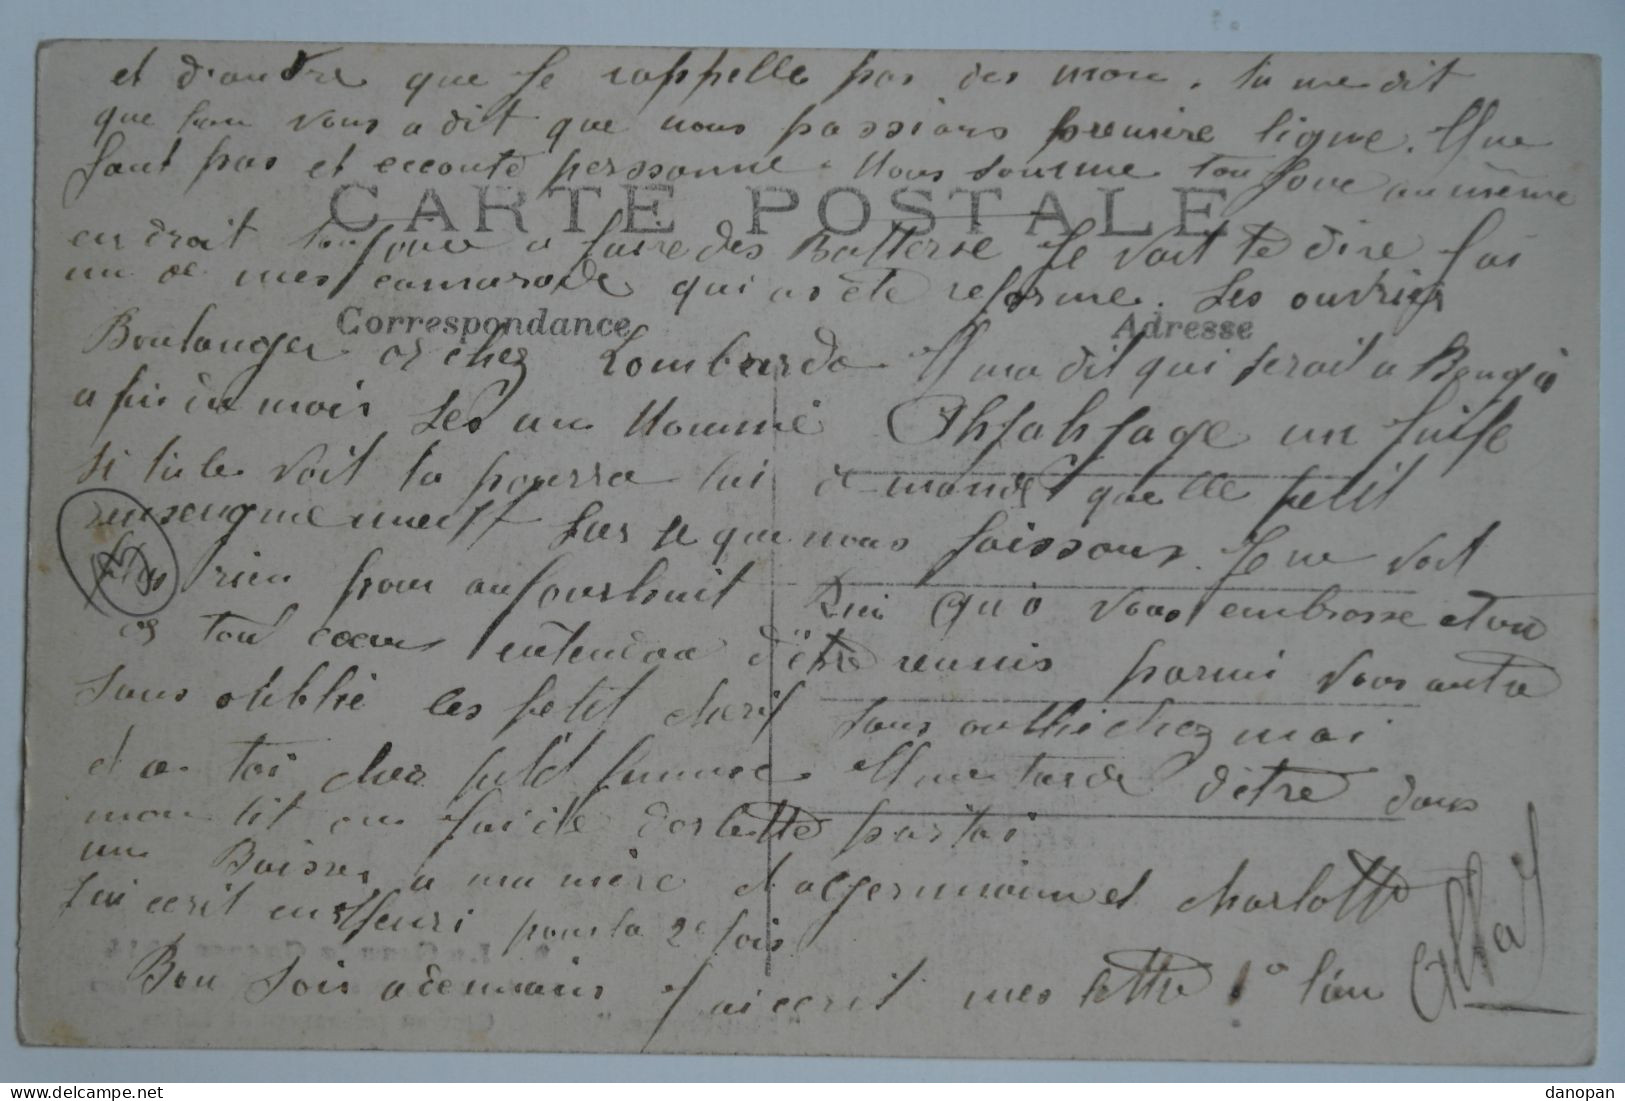 et d'andre que je rappelle pas des mon. tu me dit
que vous a dit que nous passions premire ligne. Il ne
faut pas et eccouté perssonne. Nous somme toujour au même
CARTE POSTALE
en droit toujour a faire des Batterie Je vait te dire j'ai
un de mes camarade qui as été reforme. Les ouvrier
Correspondance
Adresse
Boulanger as chez Lombarda Il ma dit qui serait a
a fin du mois Ses un Nommé un juife
si tu le voit tu pourra lui demandé quelle petit
renseugnement sur se que nous faissons. Je ne voit
rien pour aujourhuit qui vous embrasse et
de tout coeur entendan d'être reunis parmi vous autre
sans oublié les petit cherif sans oublié chez moi
et a toi cher petit femme Il me tarde d'être dans
mon lit on fai de dorlotte par toi
un Baisser a ma mère et a germaine et charlotte
J'ai ecrit en Henri pour la 2e fois
Bon soir a demain J'ai ecrit mes lettre
danopan for delcampe.net